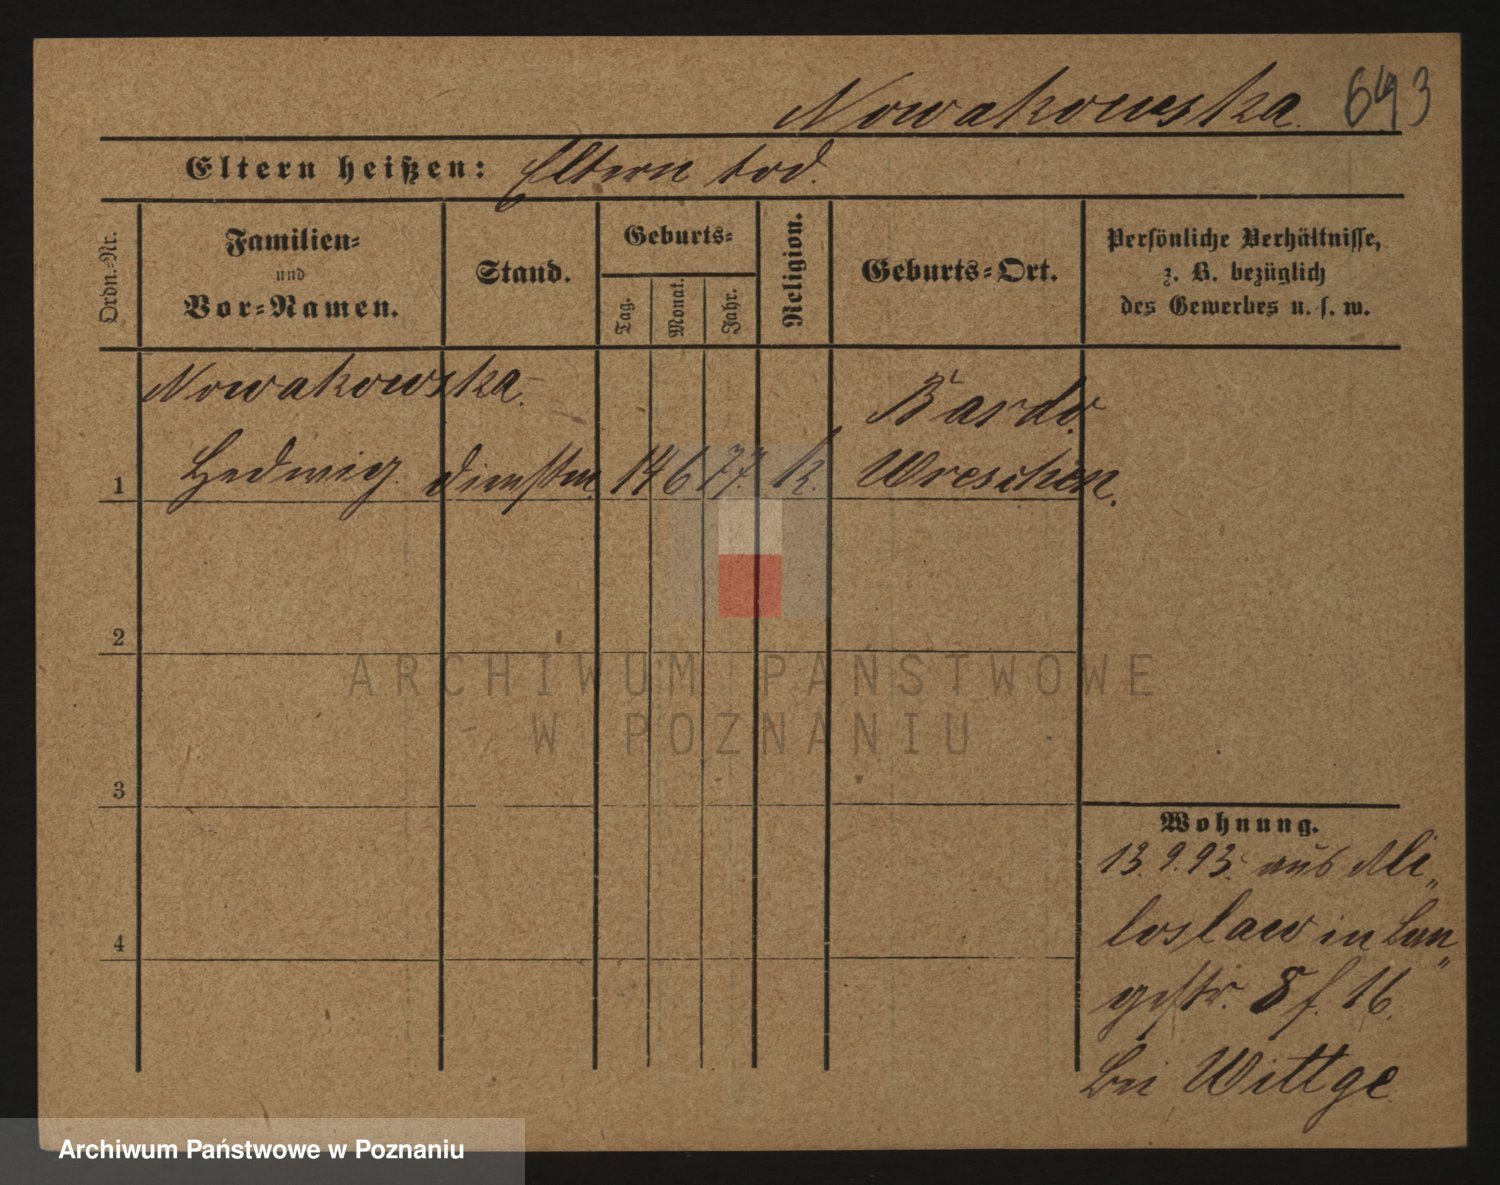 Nowakowska. 693
Eltern heißen: Eltern tod.
Ordn.-Nr.
Familien-
und
Vor-Namen.
Stand.
Geburts-
Tag.
Monat.
Jahr.
Religion.
Geburts-Ort.
Persönliche Verhältnisse,
z. B. bezüglich
des Gewerbes u. s. w.
Nowakowska. Bardo.
1 Hedwig. 14 6 77. k. Wreschen.
2
3
4
Wohnung.
13.9.93. aus Mi„
loslaw in Lan„
gestr. 8 f. 16.
bei Wittge
ARCHIWUM PAŃSTWOWE
W POZNANIU
Archiwum Państwowe w Poznaniu